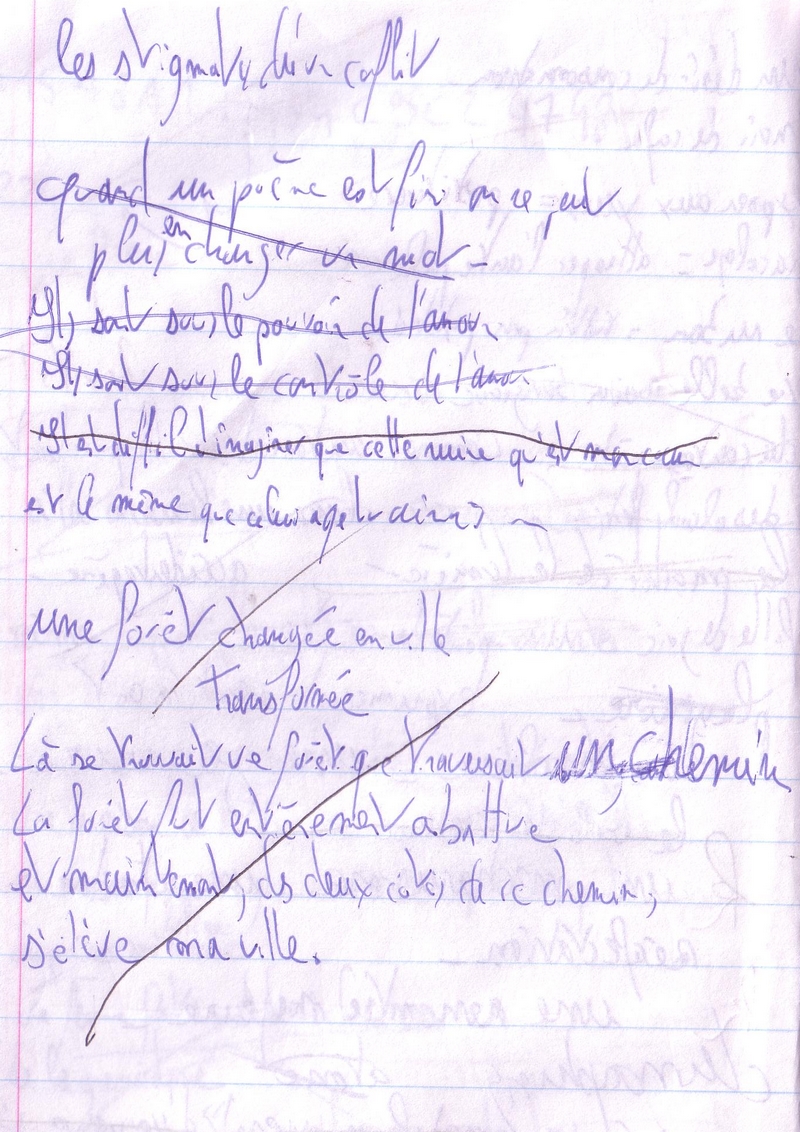 les stigmates d'un conflit
quand un poème est fini on ne peut
plus en changer un mot -
Ils sont sous le pouvoir de l'amour
Ils sont sous le contrôle de l'amour
Il est difficile d'imaginer que cette ruine qu'est mon cœur
est le même que celui que tu aimas
une forêt changée en ville
transformée
Là se trouvait une forêt que traversait un chemin
La forêt fut entièrement abattue
et maintenant, des deux côtés de ce chemin,
s'élève une ville.